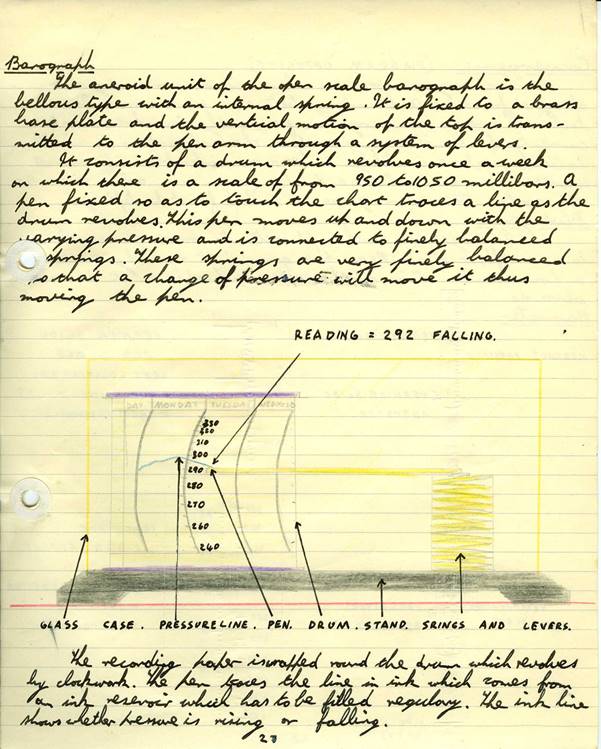 Barograph
The aneroid unit of the open scale barograph is the
bellous type with an internal spring. It is fixed to a brass
base plate and the vertical motion of the top is trans-
mitted to the pen arm through a system of levers.
It consists of a drum which revolves once a week
on which there is a scale of from 950 to 1050 millibars. A
pen fixed so as to touch the chart traces a line as the
drum revolves. This pen moves up and down with the
varying pressure and is connected to finely balanced
springs. These springs are very finely balanced
so that a change of pressure will move it thus
moving the pen.
READING = 292 FALLING.
330
310
300
290
280
270
260
240
GLASS CASE. PRESSURELINE. PEN. DRUM. STAND. SRINGS AND LEVERS.
The recording paper is wrapped round the drum which revolves
by clockwork. The pen traces the line in ink which comes from
an ink reservoir which has to be filled regulary. The ink line
shows whether pressure is rising or falling.